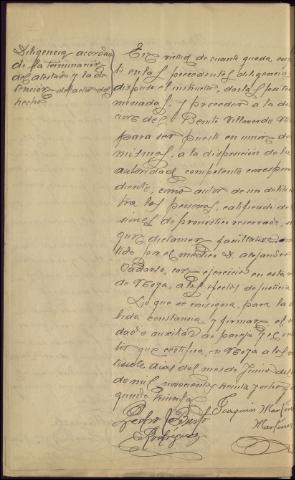 Diligencia acordan
do la terminación
del atestado y la de
tención del autor del
hecho.
En virtud de cuanto queda
to en las precedentes diligencias
dispone el instructor, darlas por ter
minadas, y proceder a la de
ción del Benito Villaverde
para ser puesto en unión de
mismas, a la disposición de la
autoridad competente correspon
diente, como autor de un delito
tra las personas, calificado de
siones de pronóstico reservado,
gún dictamen facultativo
tido por el médico D. Alejandro
Cadarso, con ejercicio en esta
de Noya, a los efectos de justicia
Lo que se consigna para la
bida constancia, y firman el
dado auxiliar de pareja y el
tor que certifica, en Noya a los
días del mes de Junio del
de mil novecientos treinta y ocho
Pedro
Rodríguez
Joaquín Martínez
Martínez